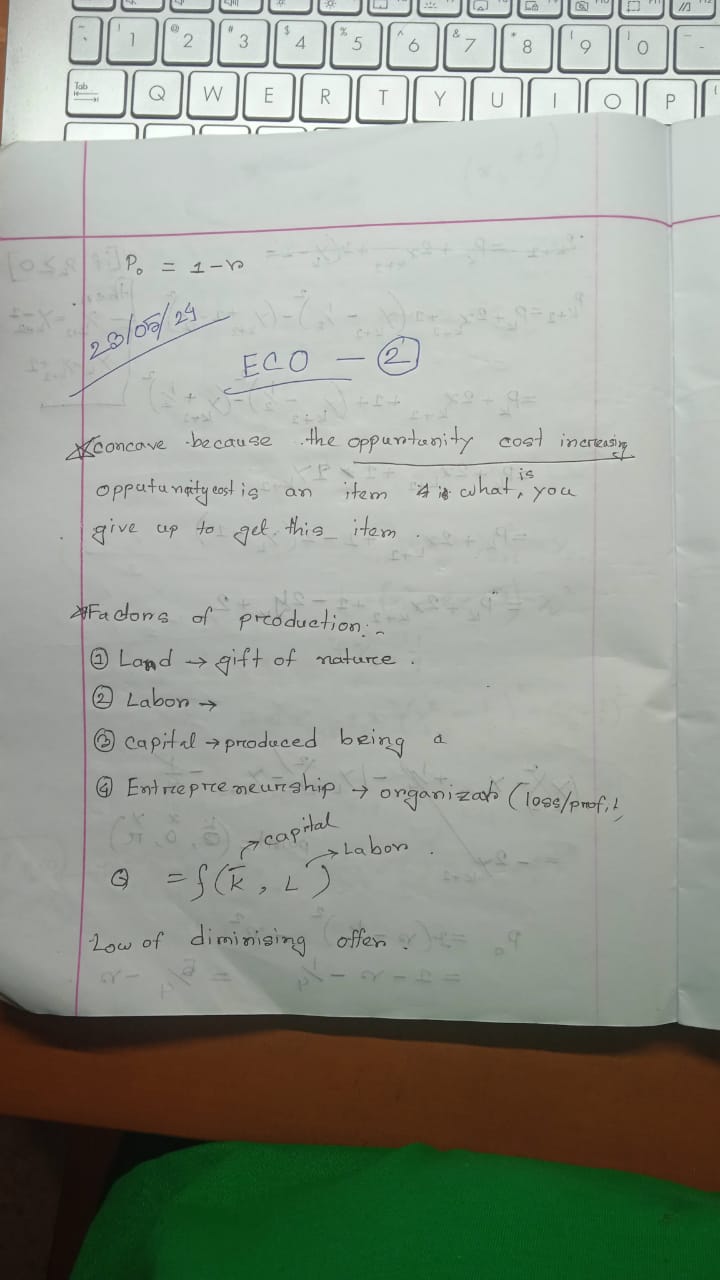 ~ ` ! 1 @ 2 # 3 $ 4 % 5 ^ 6 & 7 * 8 ( 9 ) 0 -
Tab Q W E R T Y U I O P
P₀ = 1-r
23/05/24
ECO - ②
*concave because the oppuntunity cost increasing
oppatunityeost is an item is what is you
give up to get this item.
*Factors of production:-
① Land → gift of nature.
② Labon →
③ capital → produced being a
④ Entrepreneurship → organizato (loss/profit,
→ capital
→ Labon.
Q = f(K̄, L)
Low of diminising offer.